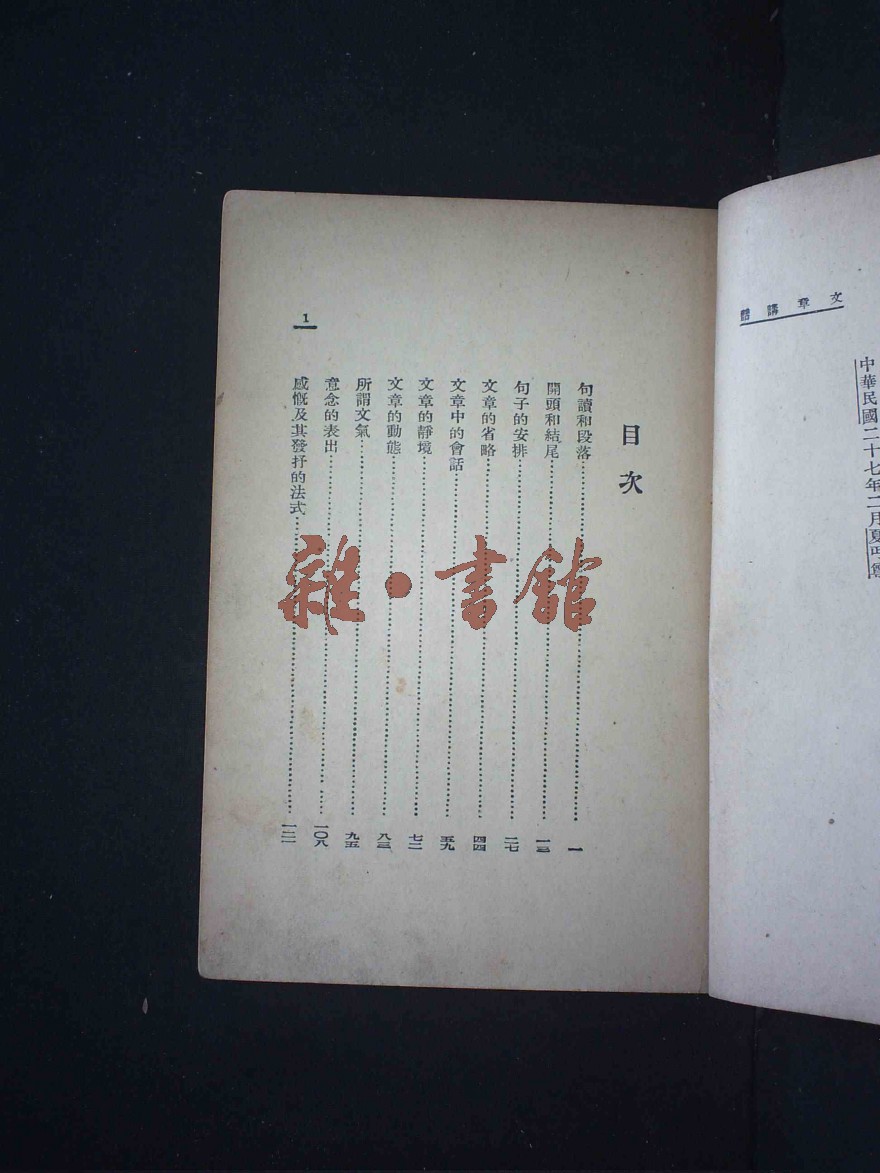 文章講話
中華民國二十七年二月夏丏尊
目次
句讀和段落……一
開頭和結尾……一三
句子的安排……二七
文章的省略……四四
文章中的會話……五九
文章的靜境……七二
文章的動態……八三
所謂文氣……九五
意念的表出……一〇八
感慨及其發抒的法式……一二一
1
雜·書館